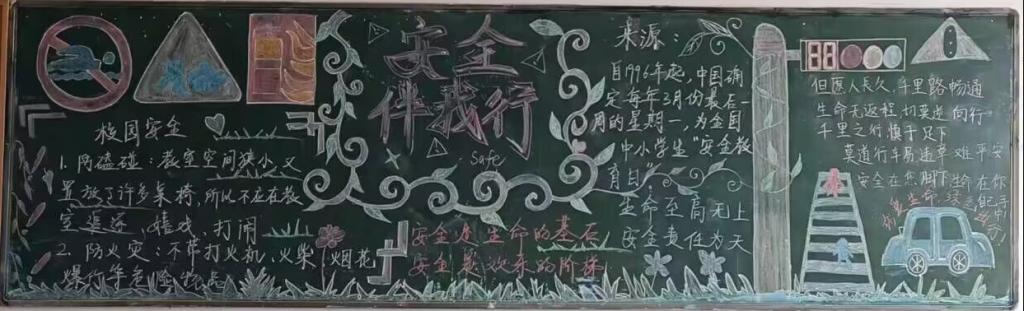 校园安全
1. 防磕碰：教室空间狭小，又
置放了许多桌椅，所以不应在教
室追逐，嬉戏，打闹
2. 防火灾：不带打火机、火柴、烟花
爆竹等危险物品
安全
伴我行
Safe
安全是生命的基石
安全是欢乐的阶梯
来源：
自1996年起，中国确
定每年3月份最在一
周的星期一，为全国
中小学生“安全教
育日”
生命至高无上
安全责任为天
88
但愿人长久，千里路畅通
生命无返程 切莫逆向行
千里之行慎于足下
莫道行车易 违章难平安
安全在您脚下 生命在你
自己手中